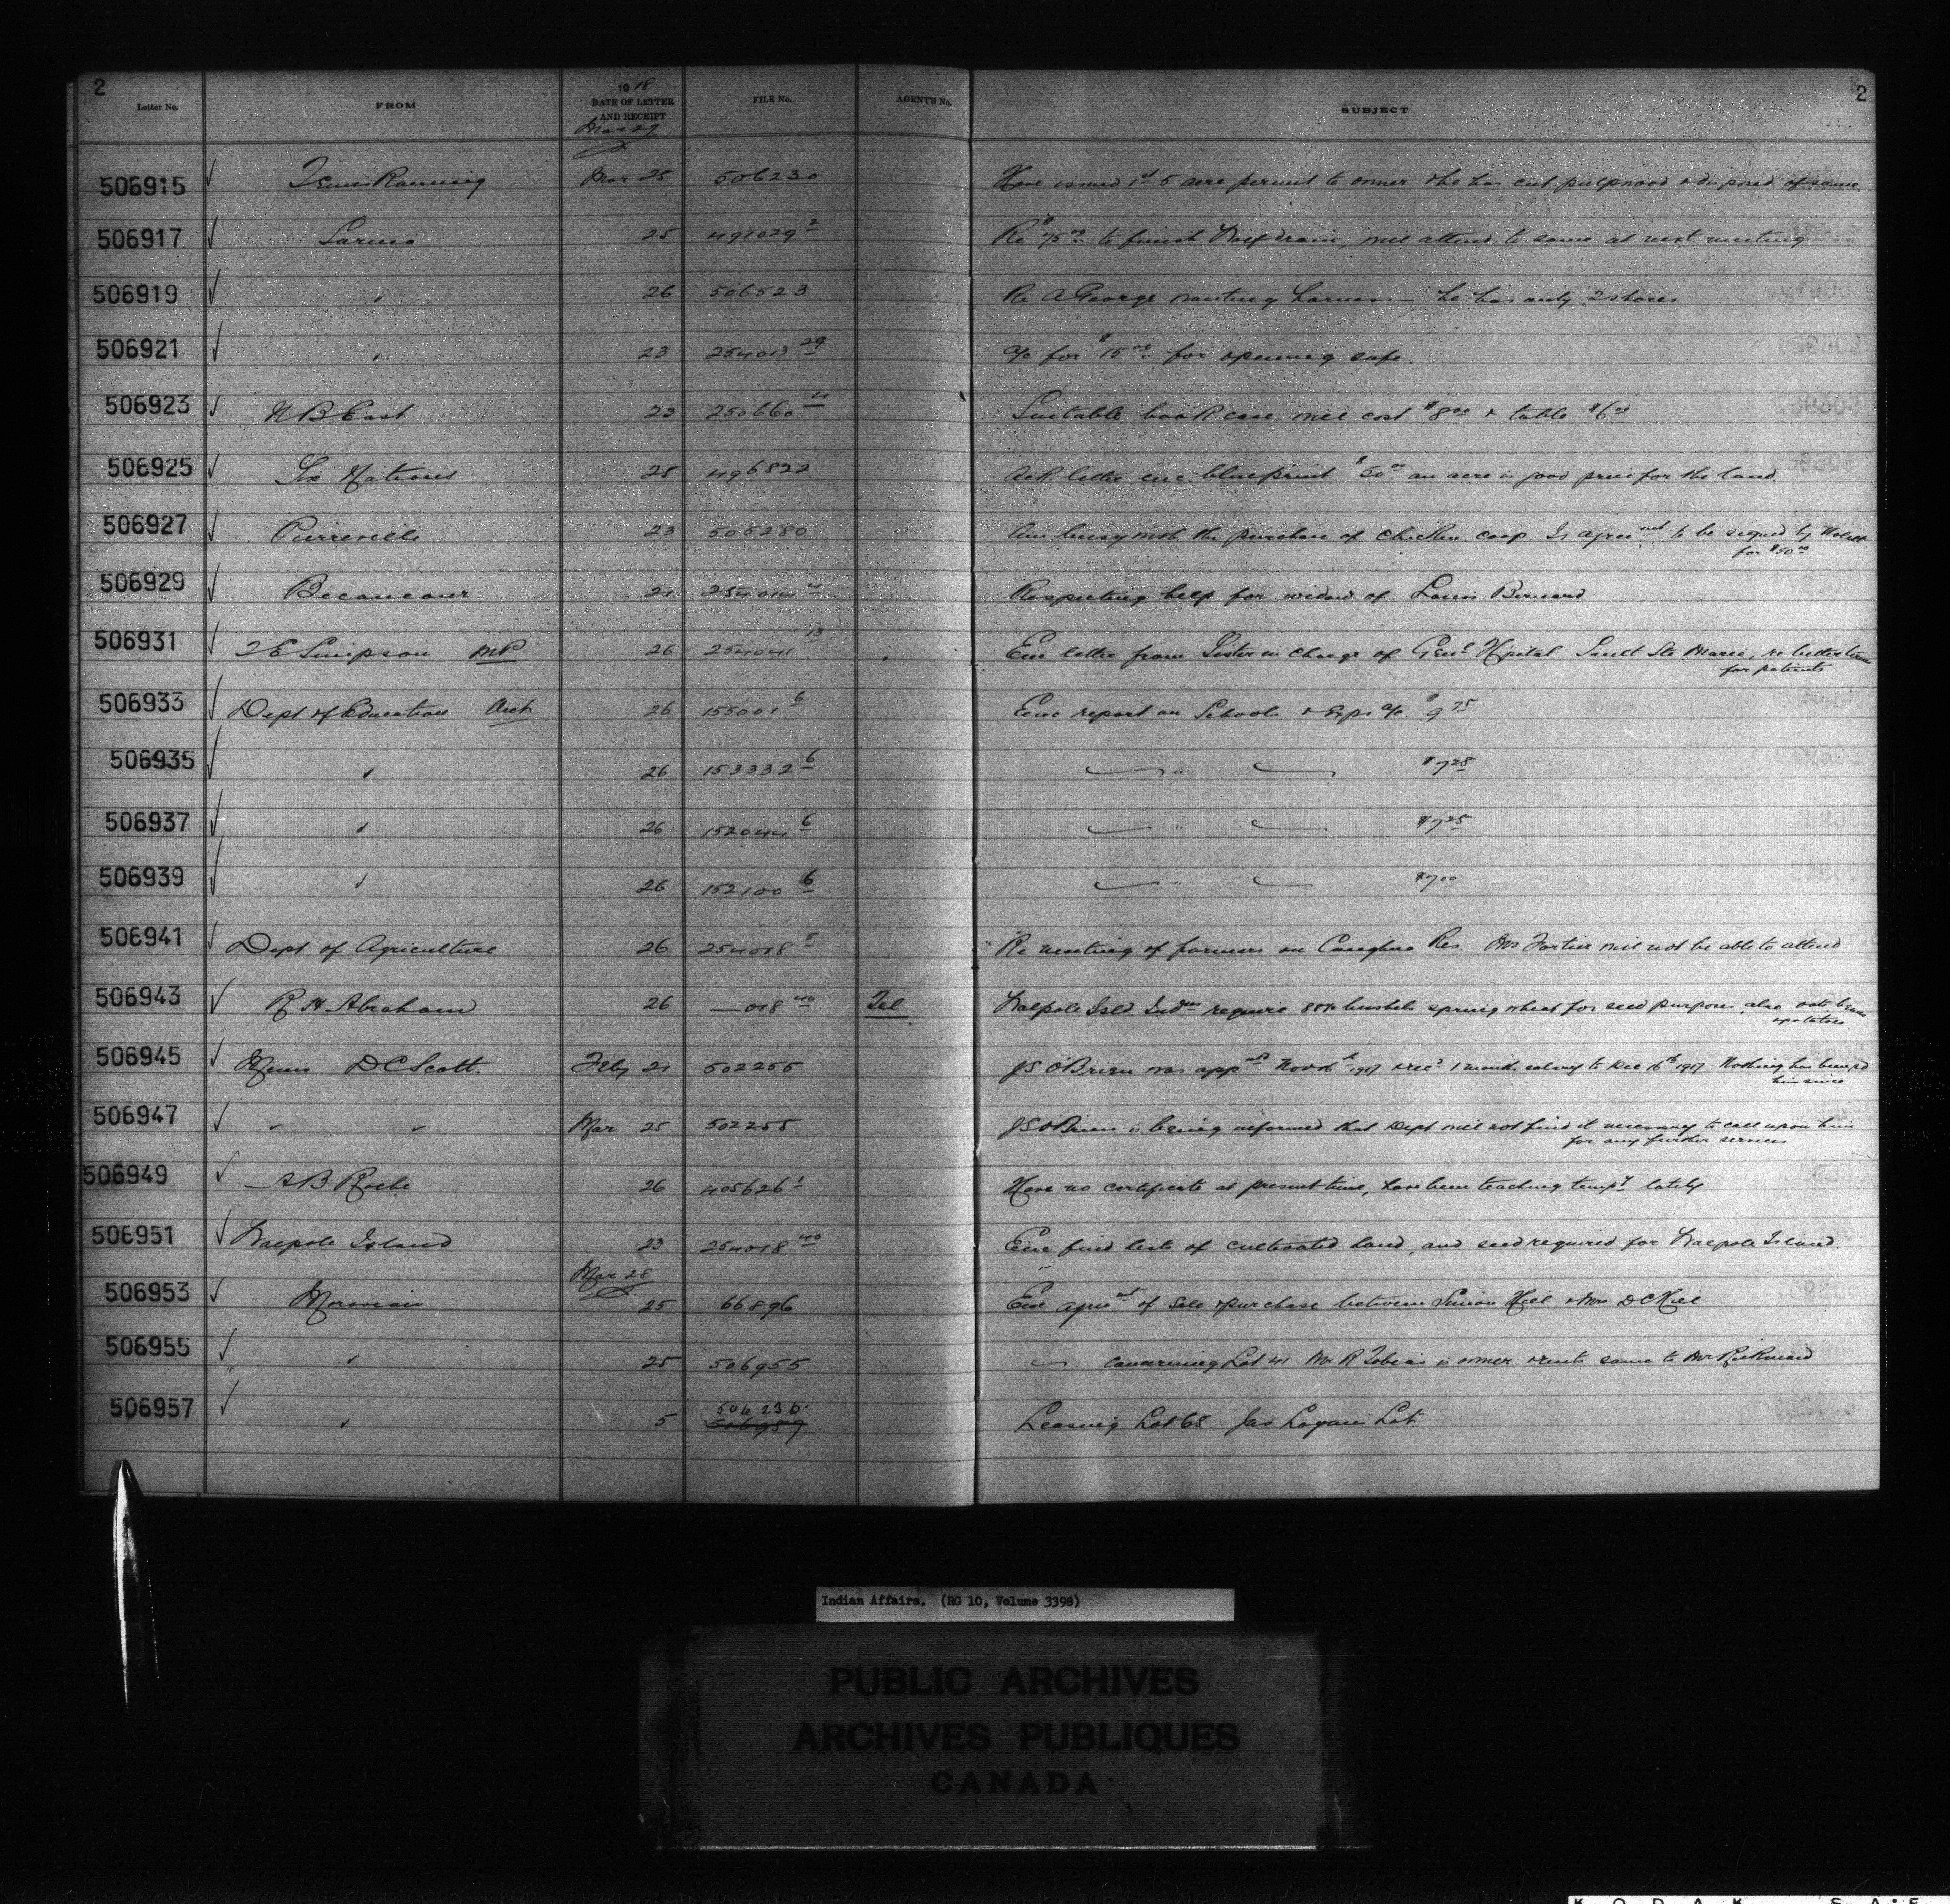 2
2
Letter No. FROM 1918 DATE OF LETTER AND RECEIPT FILE No. AGENT'S No. SUBJECT
Mar 27
506915 Mar 25 506230 Have issued 1st 5 acre permit to owner & he has cut pulpwood & disposed of same
506917 Sarnia 25 491029 2 Re $75.00 to finish drain, will attend to same at next meeting
506919 " 26 506523 Re A George wanting harness — he has only 2 shares
506921 " 23 254013 29 a/c for $15.00 for opening safe.
506923 N B East 23 250660 4 Suitable book case will cost $8.00 & table $6.00
506925 Six Nations 25 496822 Ack. letter enc. blueprint $50.00 an acre is good price for the land.
506927 Pierreville 23 505280 Am busy with the purchase of chicken coop. Is agreemt to be signed by
for $50.00
506929 Becancour 21 254014 4 Respecting help for widow of Louis Bernard
506931 Simpson MP 26 254041 13 Enc letter from Sister in charge of Genl Hospital Sault Ste Marie, re better terms
for patients
506933 Dept of Education Ont 26 155001 6 Enc report on Schools & Exps a/c. $9.75
506935 " 26 153332 6 " $7.25
506937 " 26 152044 6 " $7.25
506939 " 26 152100 6 " $7.00
506941 Dept of Agriculture 26 254018 5 Re meeting of farmers on Res. Mr Fortier will not be able to attend
506943 R H Abraham 26 —018 40 Tel Walpole Isld Indns require bushels spring wheat for seed purposes, also oats beans
& potatoes
506945 Memo D C Scott. Feby 21 502255 J S O'Brien was appd 1917 & recd 1 month salary to Dec 16th 1917 Nothing has been pd
him since
506947 " " Mar 25 502255 J S O'Brien is being informed that Dept will not find it necessary to call upon him
for any further services
506949 A B Roche 26 405626 1 Have no certificate at present time, have been teaching tempy lately
506951 Walpole Island 23 254018 40 Enc find lists of cultivated land, and seed required for Walpole Island.
Mar 28
506953 Moravian 25 66896 Enc agreemt of sale & purchase between Simon Hill & Mrs D C Hill
506955 " 25 506955 " concerning Lot 41 Mr R Tobias is owner & rents same to Mr
506957 " 5 506230
506957
Leasing Lot 68 Jas Logan's Lot
Indian Affairs. (RG 10, Volume 3398)
PUBLIC ARCHIVES
ARCHIVES PUBLIQUES
CANADA